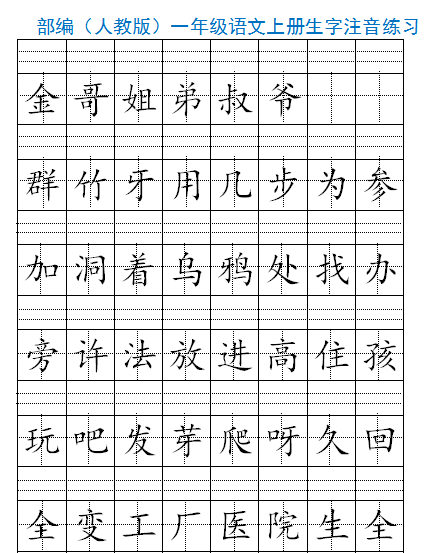 部编（人教版）一年级语文上册生字注音练习
金哥姐弟叔爷
群竹牙用几步为参
加洞着乌鸦处找办
旁许法放进高住孩
玩吧发芽爬呀久回
全变工厂医院生全